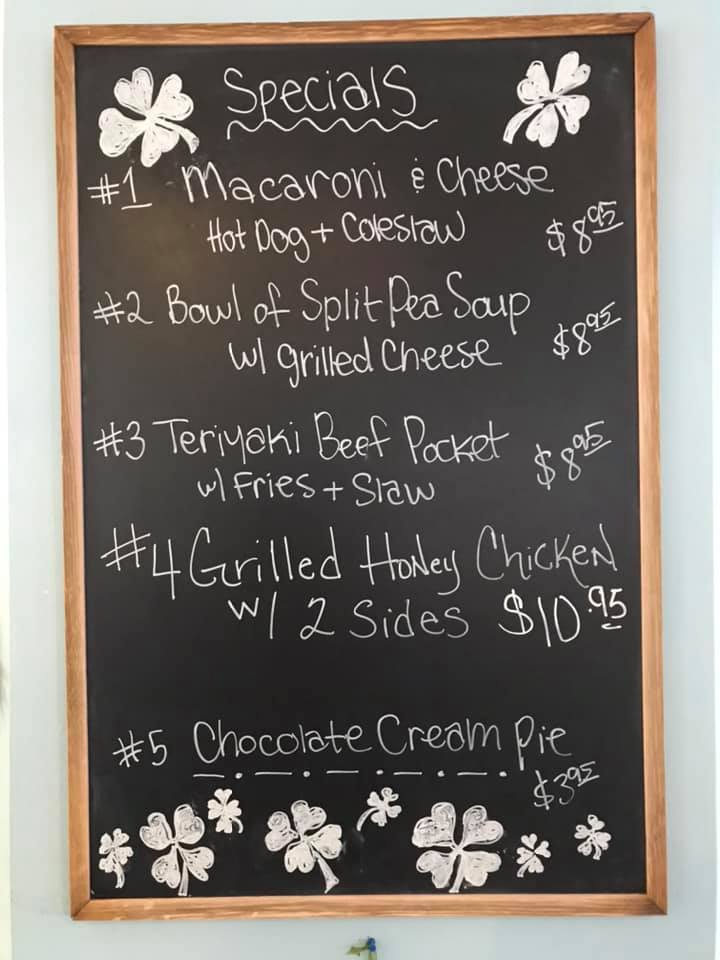 Specials
#1 Macaroni & Cheese
Hot Dog + Coleslaw $8.95
#2 Bowl of Split Pea Soup
w/ grilled Cheese $8.95
#3 Teriyaki Beef Pocket
w/ Fries + Slaw $8.95
#4 Grilled Honey Chicken
w/ 2 Sides $10.95
#5 Chocolate Cream Pie
$3.95